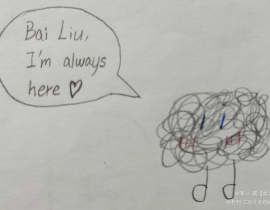 Bai Liu,
I'm always
here ♡